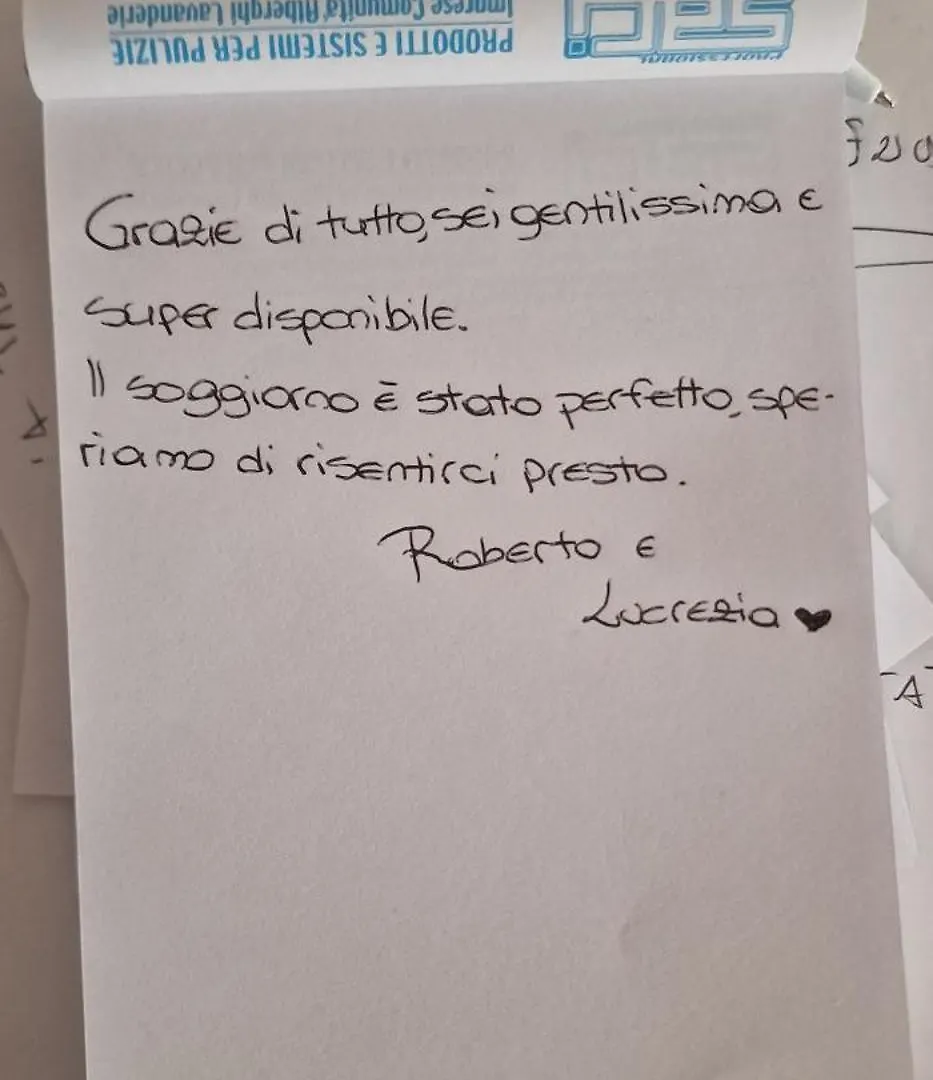 Imprese Comunità Alberghi Lavanderie
PRODOTTI E SISTEMI PER PULIZIE
PROFESSIONAL
Grazie di tutto, sei gentilissima e
super disponibile.
Il soggiorno è stato perfetto, spe-
riamo di risentirci presto.
Roberto e
Lucrezia ♥